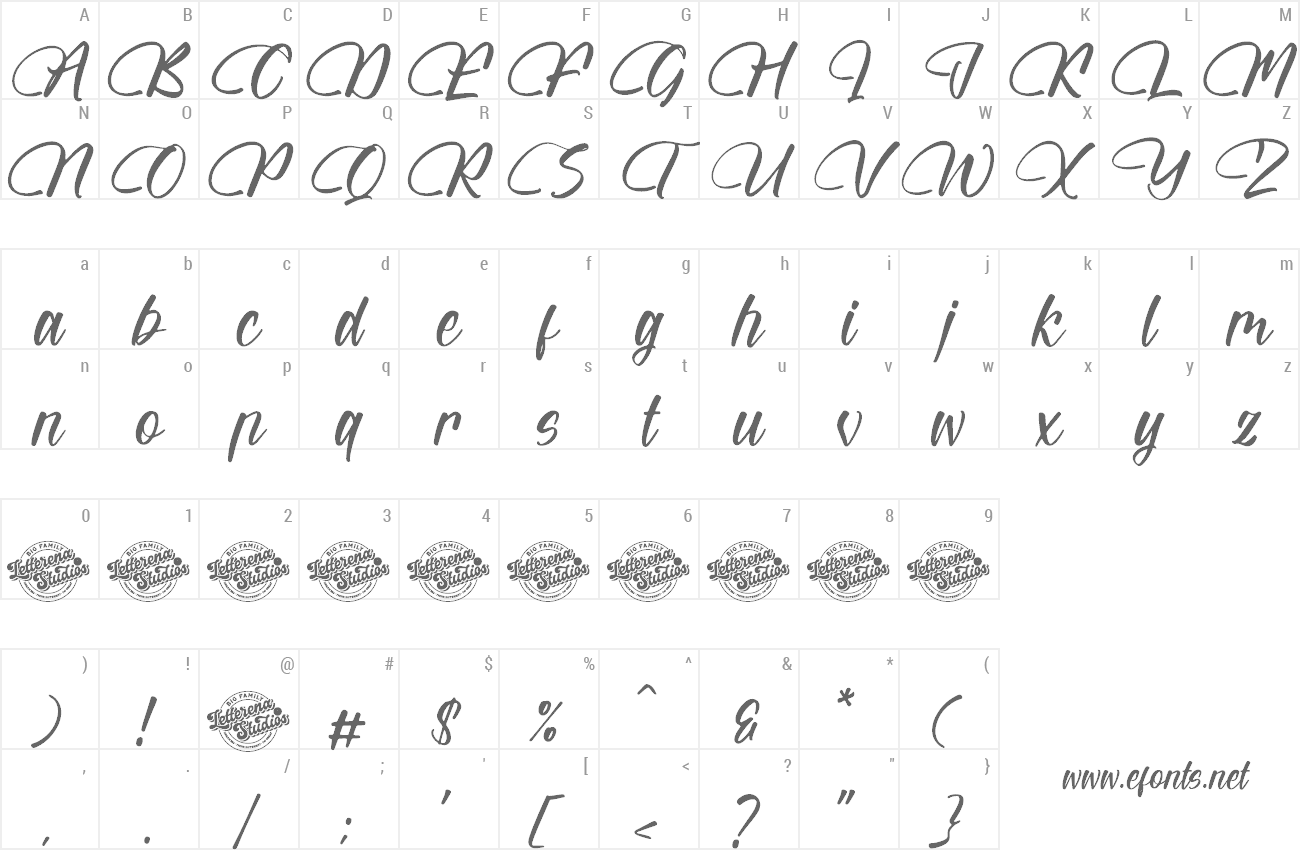 A B C D E F G H I J K L M
A B C D E F G H I J K L M
N O P Q R S T U V W X Y Z
N O P Q R S T U V W X Y Z
a b c d e f g h i j k l m
a b c d e f g h i j k l m
n o p q r s t u v w x y z
n o p q r s t u v w x y z
0 1 2 3 4 5 6 7 8 9
BIG FAMILY BIG FAMILY BIG FAMILY BIG FAMILY BIG FAMILY BIG FAMILY BIG FAMILY BIG FAMILY BIG FAMILY BIG FAMILY
Letterena Letterena Letterena Letterena Letterena Letterena Letterena Letterena Letterena Letterena
Studios Studios Studios Studios Studios Studios Studios Studios Studios Studios
) ! @ # $ % ^ & * (
) ! BIG FAMILY Letterena Studios # $ % ^ & * (
, . / ; ' [ < ? " }
, . / ; ' [ < ? " }
www.efonts.net